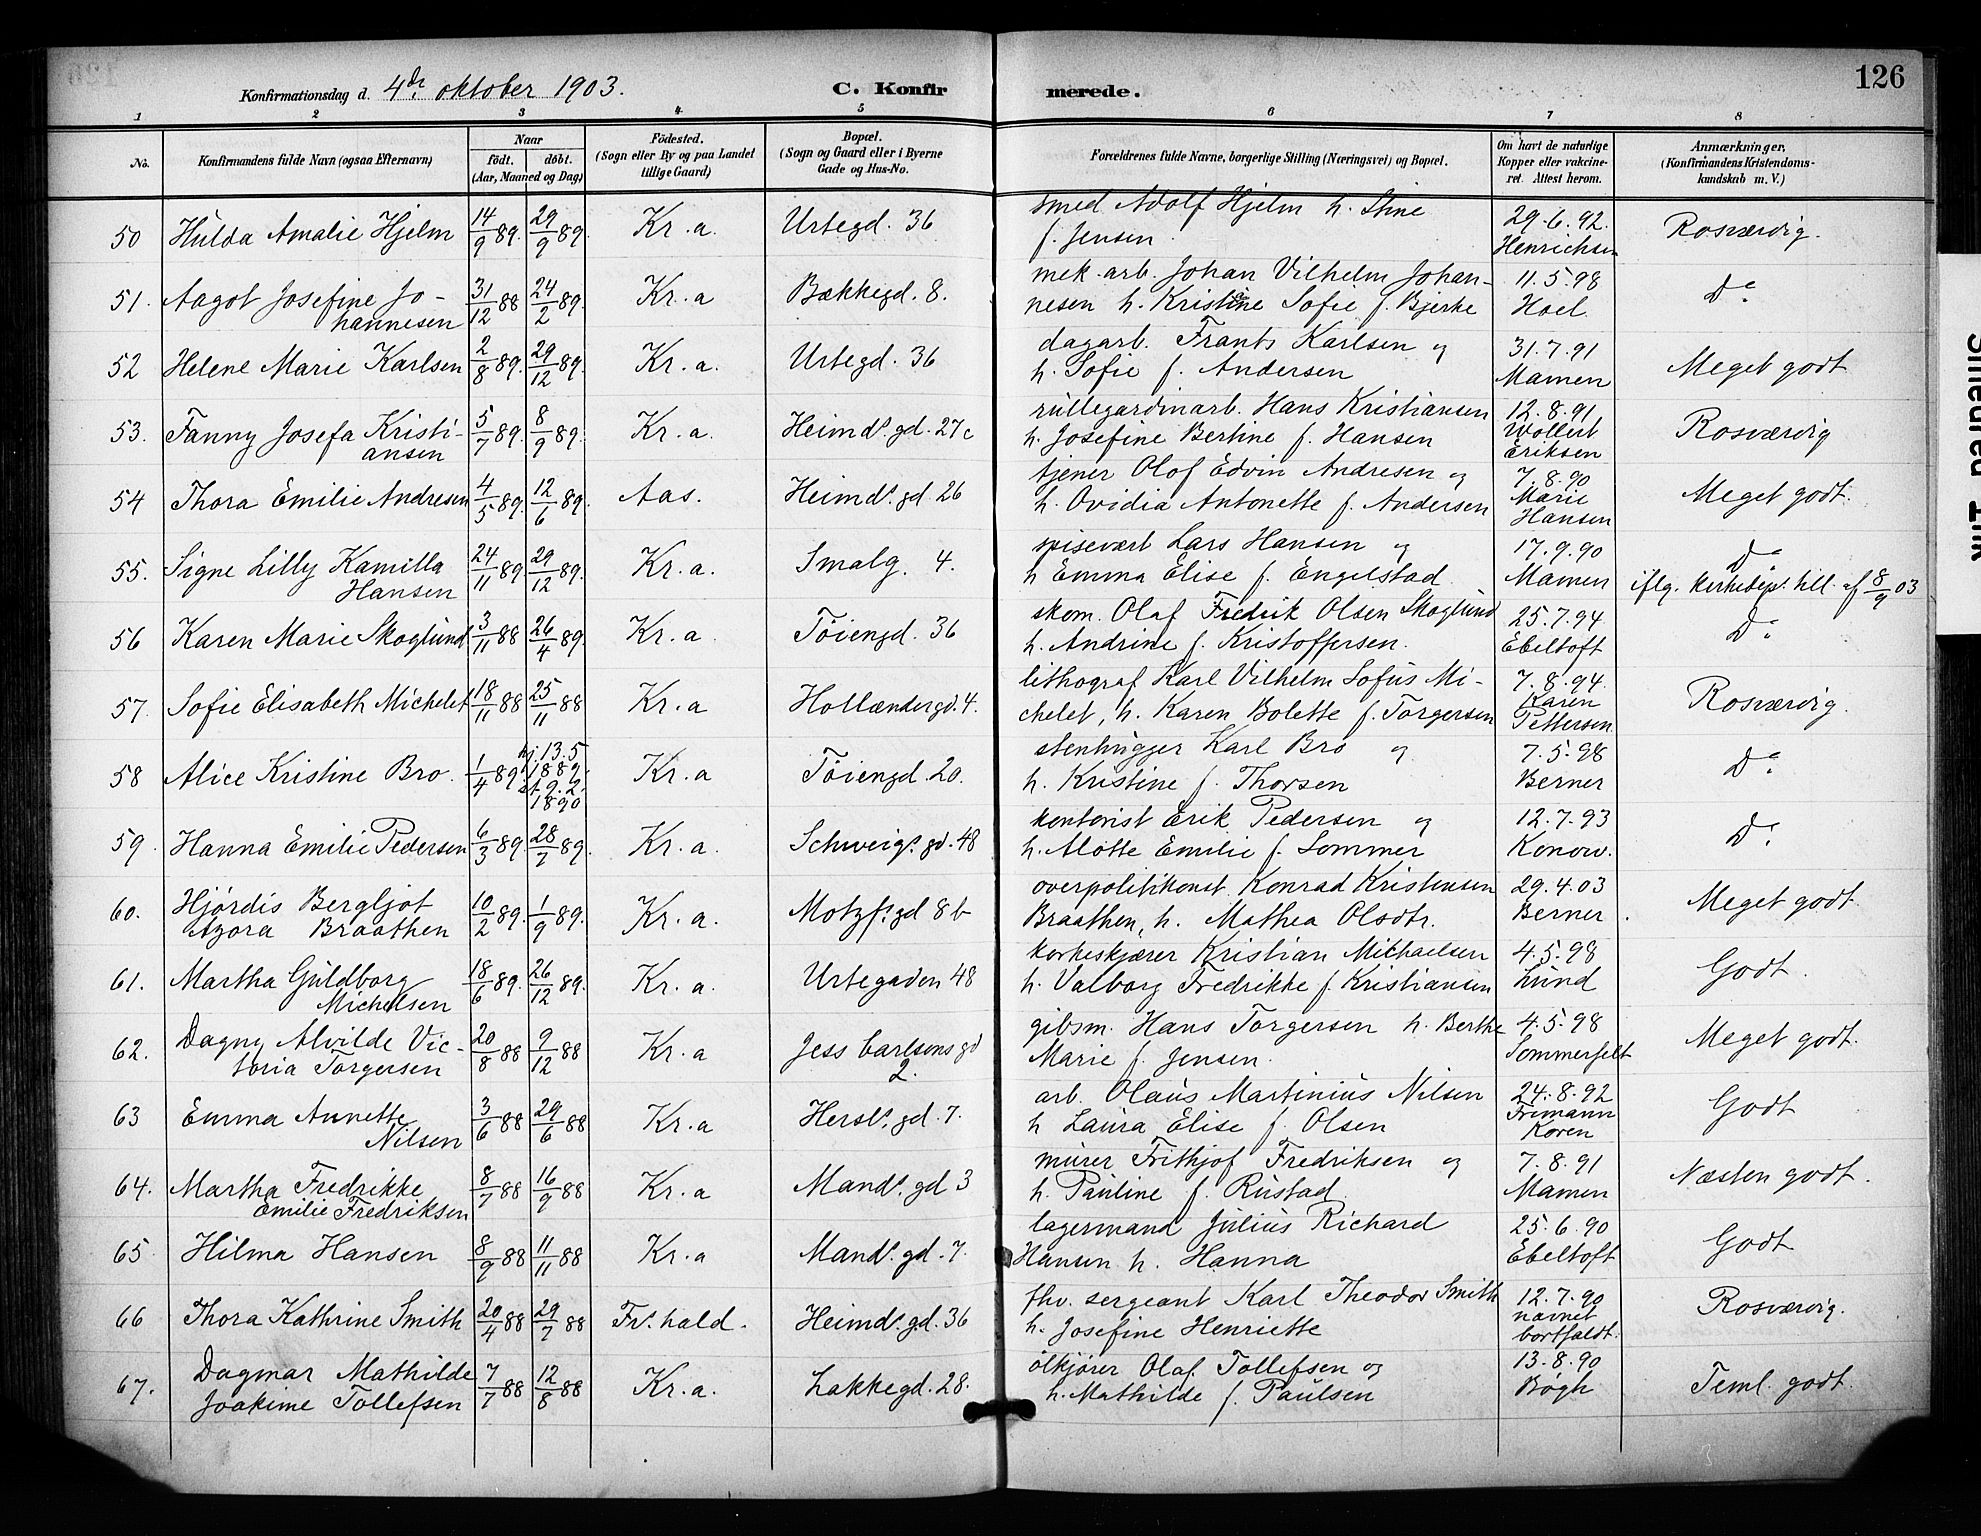 126
Konfirmationsdag d. 4de oktober 1903. C. Konfirmerede.
1 2 3 4 5 6 7 8
No. Konfirmandens fulde Navn (ogsaa Efternavn) Naar født. døbt. (Aar, Maaned og Dag) Fødested. (Sogn eller By og paa Landet tillige Gaard) Bopæl. (Sogn og Gaard eller i Byerne Gade og Hus-No. Forældrenes fulde Navne, borgerlige Stilling (Næringsvei) og Bopæl. Om havt de naturlige Kopper eller vakcineret. Attest herom. Anmærkninger. (Konfirmandens Kristendomskundskab m. V.)
50 Hulda Amalie Hjelm 14/9 89. 29/9 89. Kr.a. Urtegd. 36 smed Adolf Hjelm h. Stine f. Jensen 29.6.92. Henrichsen Rosværdig.
51. Aagot Josefine Johannesen 31/12 88 24/2 89. Kr.a Bækkegd. 8. mek. arb. Johan Vilhelm Johannesen h. Kristine Sofie f. Bjerke 11.5.98 Hoel Do
52 Helene Marie Karlsen 2/8 89. 29/12 89. Kr.a. Urtegd. 36 dagarb. Frants Karlsen og h. Sofie f. Andersen 31.7.91 Mamen Meget godt
53. Fanny Josefa Kristiansen 5/7 89. 8/9 89. Kr.a. Heimds. gd. 27c rullegardinarb. Hans Kristiansen h. Josefine Bertine f. Hansen 12.8.91. Wollert Eriksen Rosværdig
54 Thora Emilie Andresen 4/5 89. 12/6 89. Aas. Heimds. gd 26 tjener Olof Edvin Andresen og h. Ovidia Antonette f. Andersen 7.8.90 Marie Hansen Meget godt.
55. Signe Lilly Kamilla Hansen 24/11 89 29/12 89. Kr.a. Smalg. 4. spisevært Lars Hansen og h Emma Elise f. Engelstad 17.9.90 Mamen Do iflg. kirkedep. till. af 8/9 03
56 Karen Marie Skoglund 3/11 88 26/4 89. Kr.a. Tøiengd. 36 skom. Olaf Fredrik Olsen Skoglund h. Andrine f. Kristoffersen. 25.7.94 Ebeltoft Do
57. Sofie Elisabeth Michelet 18/11 88 25/11 88 Kr.a Hollændergd. 4. lithograf Karl Vilhelm Sofus Michelet, h. Karen Bolette f. Torgersen 7.8.94. Karen Pettersen Rosværdig.
58 Alice Kristine Bro. 1/4 89 hj. 13.5 1889. st. 9.2. 1890 Kr.a Tøiengd. 20. stenhugger Karl Bro og h. Kristine f. Thorsen 7.5.98 Berner Do
59. Hanna Emilie Pedersen 6/3 89. 28/7 89. Kr.a. Schweigs. gd. 48 kontorist Erik Pedersen og h. Alotte Emilie f. Sommer 12.7.93 Konow. Do
60. Hjørdis Bergljot Azora Braathen 10/2 89. 1/9 89. Kr.a. Motzfs. gd 8b overpolitikonst. Konrad Kristensen Braathen, h. Mathea Olsdtr. 29.4.03 Berner. Meget godt
61. Martha Guldborg Michelsen 18/6 89. 26/12 89. Kr.a. Urtegaden 48 korkeskjærer Kristian Michaelsen h. Valborg Fredrikke f. Kristiansen 4.5.98 Lund Godt.
62. Dagny Alvilde Victoria Torgersen 20/8 88 9/12 88 Kr.a Jess Carlsens gd 2. gibsm. Hans Torgersen h. Berthe Marie f. Jensen. 4.5.98 Sommerfelt Meget godt.
63 Emma Annette Nilsen 3/6 88 29/6 88 Kr.a Hersls. gd. 7. arb. Olaus Martinius Nilsen h Laura Elise f. Olsen 24.8.92 Frimann Koren Godt
64. Martha Fredrikke Emilie Fredriksen 8/7 88 16/9 88 Kr.a Mands. gd 3 murer Frithjof Fredriksen og h. Pauline f. Rustad 7.8.91 Mamen Næsten godt.
65 Hilma Hansen 8/9 88 11/11 88 Kr.a Mands. gd. 7. lagermand Julius Richard Hansen h. Hanna 25.6.90 Ebeltoft Godt
66 Thora Kathrine Smith 20/4 88 29/7 88 Frs. hald. Heimds. gd. 36 fhv. sergeant Karl Theodor Smith h. Josefine Henriette 12.7.90 navnet bortfaldt. Rosværdig.
67. Dagmar Mathilde Joakime Tollefsen 7/7 88 12/8 88 Kr.a. Lakkegd. 28. ølkjører Olaf Tollefsen og h. Mathilde f. Paulsen 13.8.90 Bøgh Teml. godt